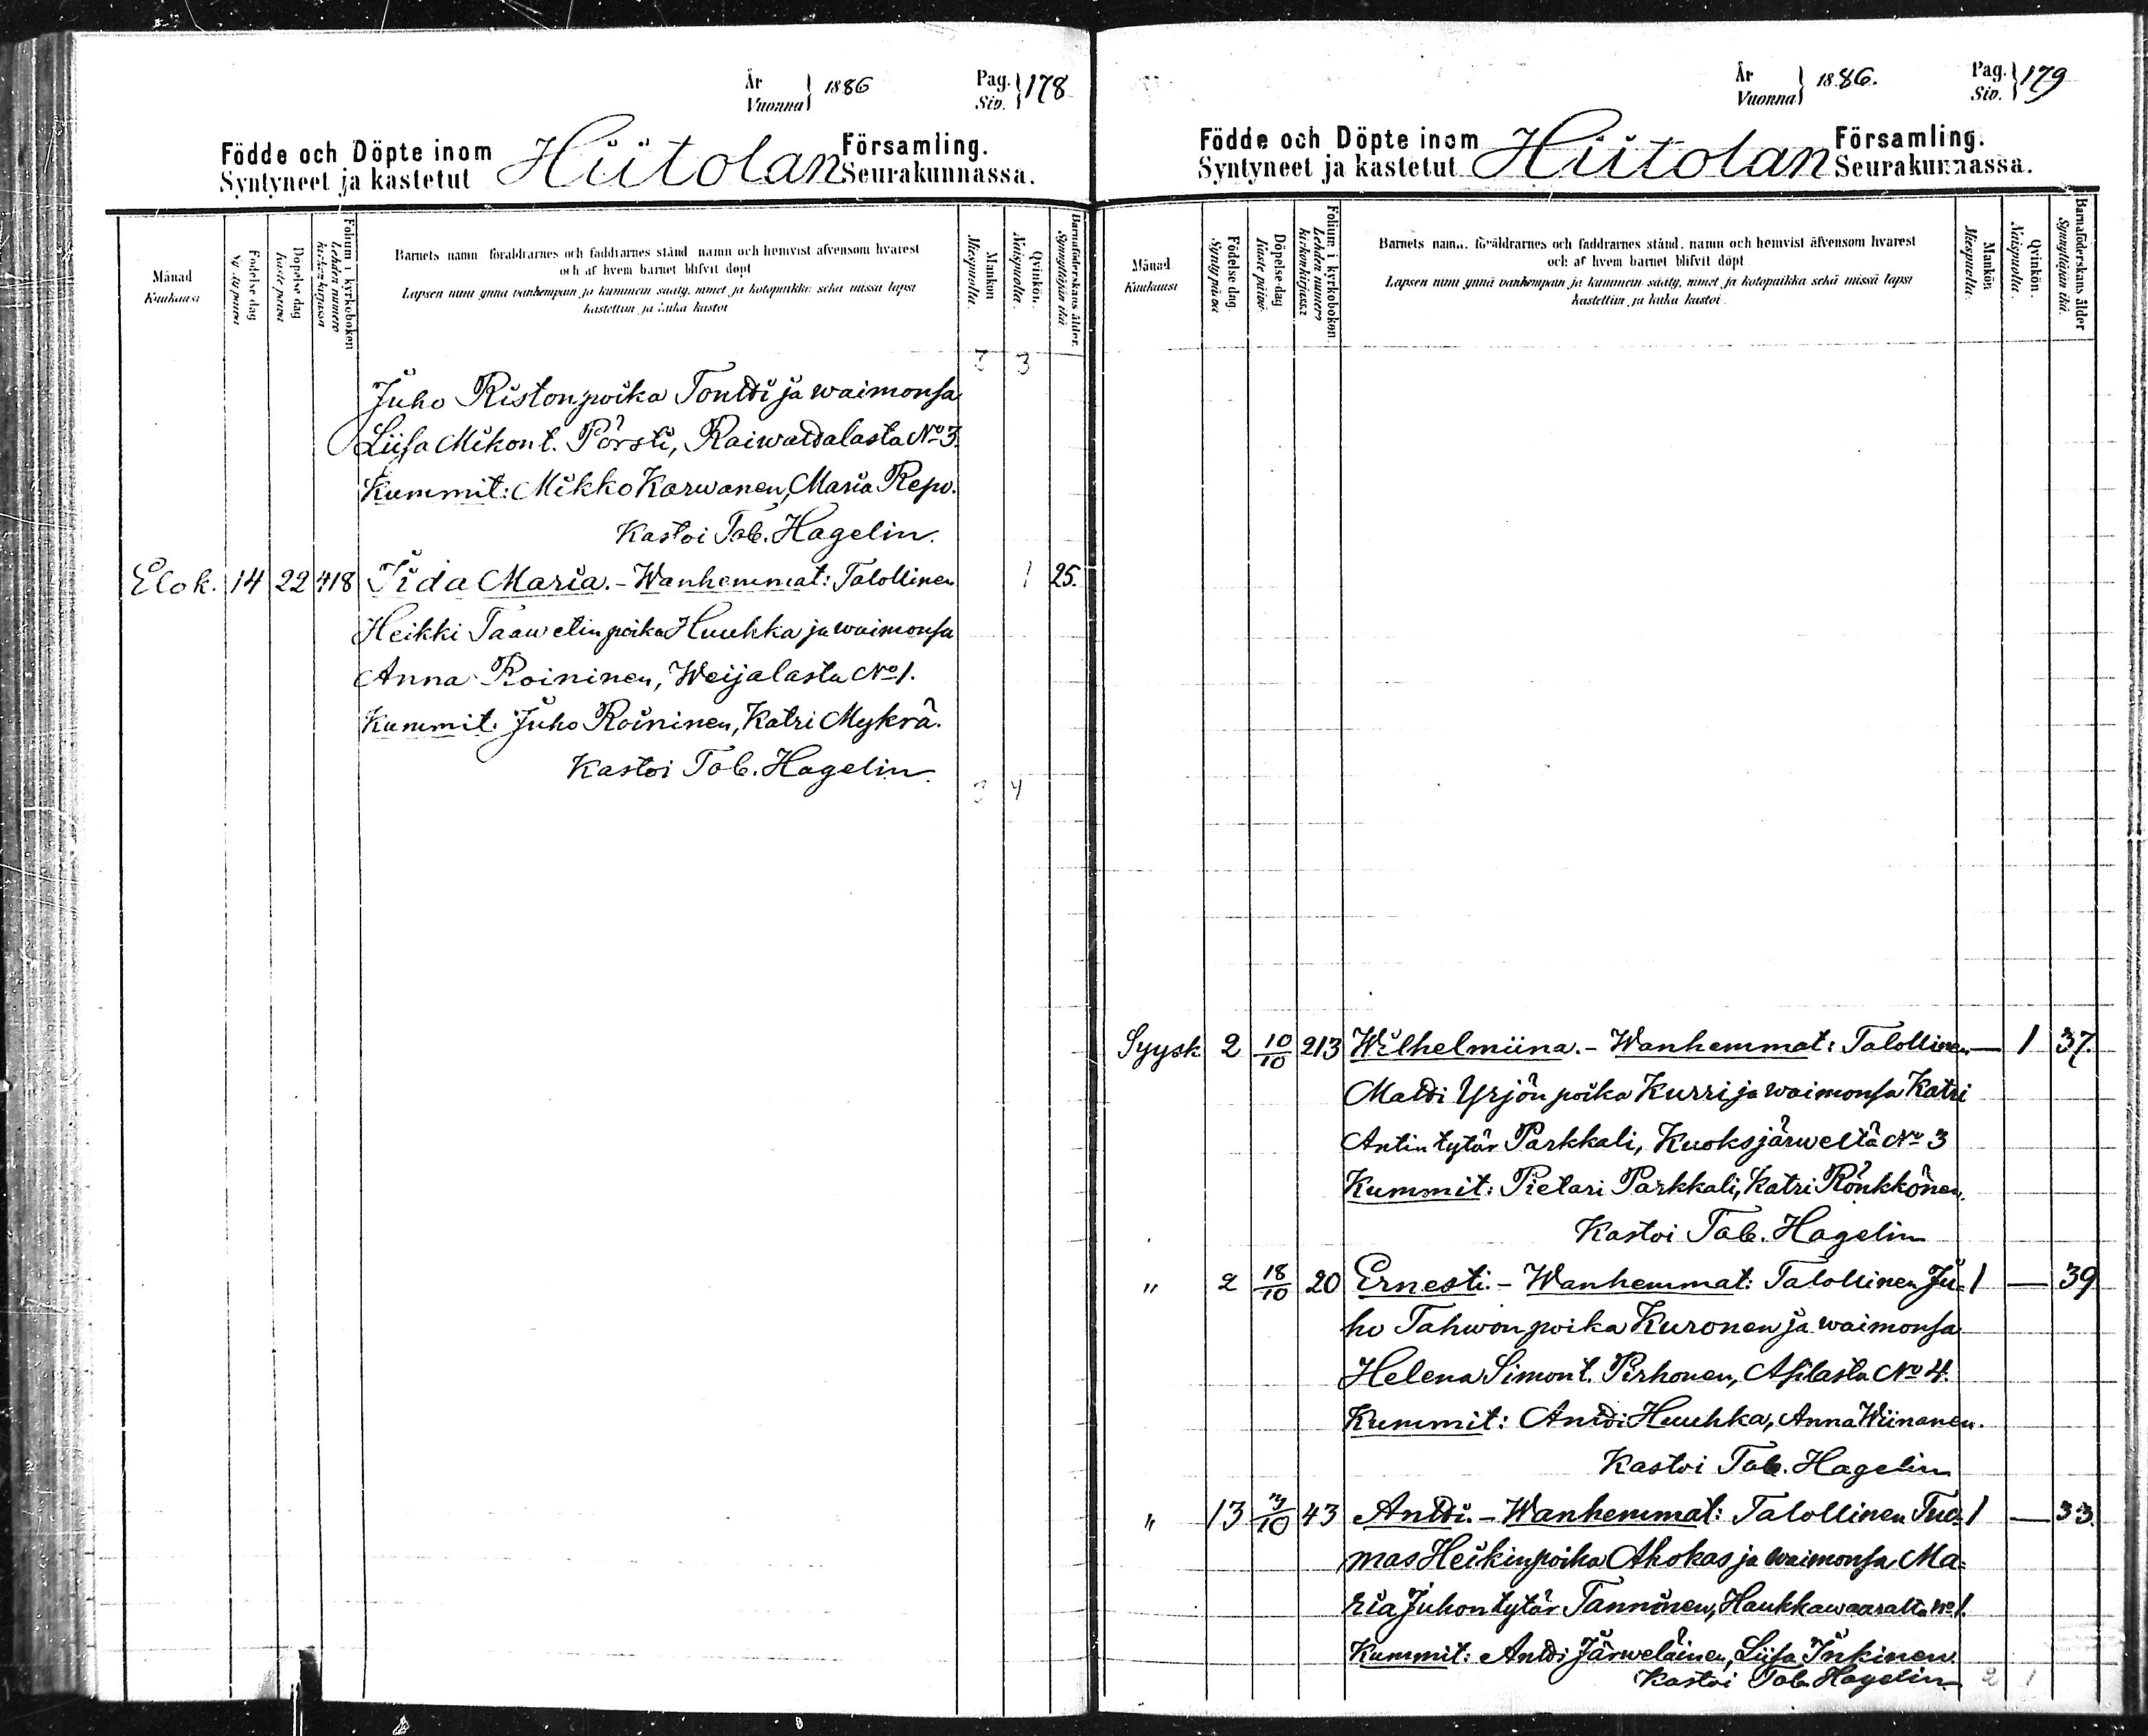 År
Vuonna } 1886
Pag.
Siv. } 178
Födde och Döpte inom Hiitolan Församling.
Syntyneet ja kastetut Seurakunnassa.
Månad
Kuukausi
Födelse dag
Synty päivä
Döpelse dag
Kaste päivä
Folium i kyrkoboken
Lehden numero
kirkonkirjassa
Barnets namn föräldrarnes och faddrarnes stånd namn och hemvist äfvensom hvarest
och af hvem barnet blifvit döpt
Lapsen nimi ynnä vanhempain ja kummein sääty, nimet ja kotopaikka sekä missä lapsi
kastettiin ja kuka kastoi
Mankön
Miespuolia.
Qvinkön.
Naispuolia.
Barnaföderskans ålder.
Synnyttäjän ikä.
2 3
Juho Ristonpoika Tontti ja waimonsa
Liisa Mikont. Pörsti, Raiwattalasta No 3.
Kummit: Mikko Karwanen, Maria Repo.
Kastoi Tob. Hagelin.
Elok. 14 22 418 Iida Maria. - Wanhemmat: Talollinen 1 25.
Heikki Taawetinpoika Huuhka ja waimonsa
Anna Roininen, Weijalasta No 1.
Kummit: Juho Roininen, Katri Mykrä.
Kastoi Tob. Hagelin.
3 4
År
Vuonna } 1886.
Pag.
Siv. } 179
Födde och Döpte inom Hiitolan Församling.
Syntyneet ja kastetut Seurakunnassa.
Månad
Kuukausi
Födelse dag.
Synty päivä
Döpelse-dag
Kaste päivä.
Folium i kyrkoboken.
Lehden numero
kirkonkirjassa
Barnets namn, föräldrarnes och faddrarnes stånd, namn och hemvist äfvensom hvarest
och af hvem barnet blifvit döpt
Lapsen nimi ynnä vanhempain ja kummein sääty, nimet ja kotopaikka sekä missä lapsi
kastettiin ja kuka kastoi
Mankön.
Miespuolia.
Qvinkön.
Naispuolia.
Barnaföderskans ålder
Synnyttäjän ikä.
Syysk 2 10/10 213 Wilhelmiina. - Wanhemmat: Talollinen — 1 37.
Matti Yrjönpoika Kurri ja waimonsa Katri
Antintytär Parkkali, Kuoksjärweltä No 3
Kummit: Pietari Parkkali, Katri Rönkkönen.
Kastoi Tob. Hagelin
" 2 18/10 20 Ernesti. - Wanhemmat: Talollinen Ju= 1 — 39
ho Tahwonpoika Kuronen ja waimonsa
Helena Simont. Pirhonen, Asilasta No 4.
Kummit: Antti Huuhka, Anna Wiinanen.
Kastoi Tob. Hagelin
" 13 /10 43 Antti. - Wanhemmat: Talollinen Tuo= 1 — 33.
mas Heikinpoika Ahokas ja waimonsa Ma=
ria Juhontytär Tanninen, Haukkawaaralta No 1.
Kummit: Antti Järweläinen, Liisa Inkinen.
Kastoi Tob. Hagelin
2 1